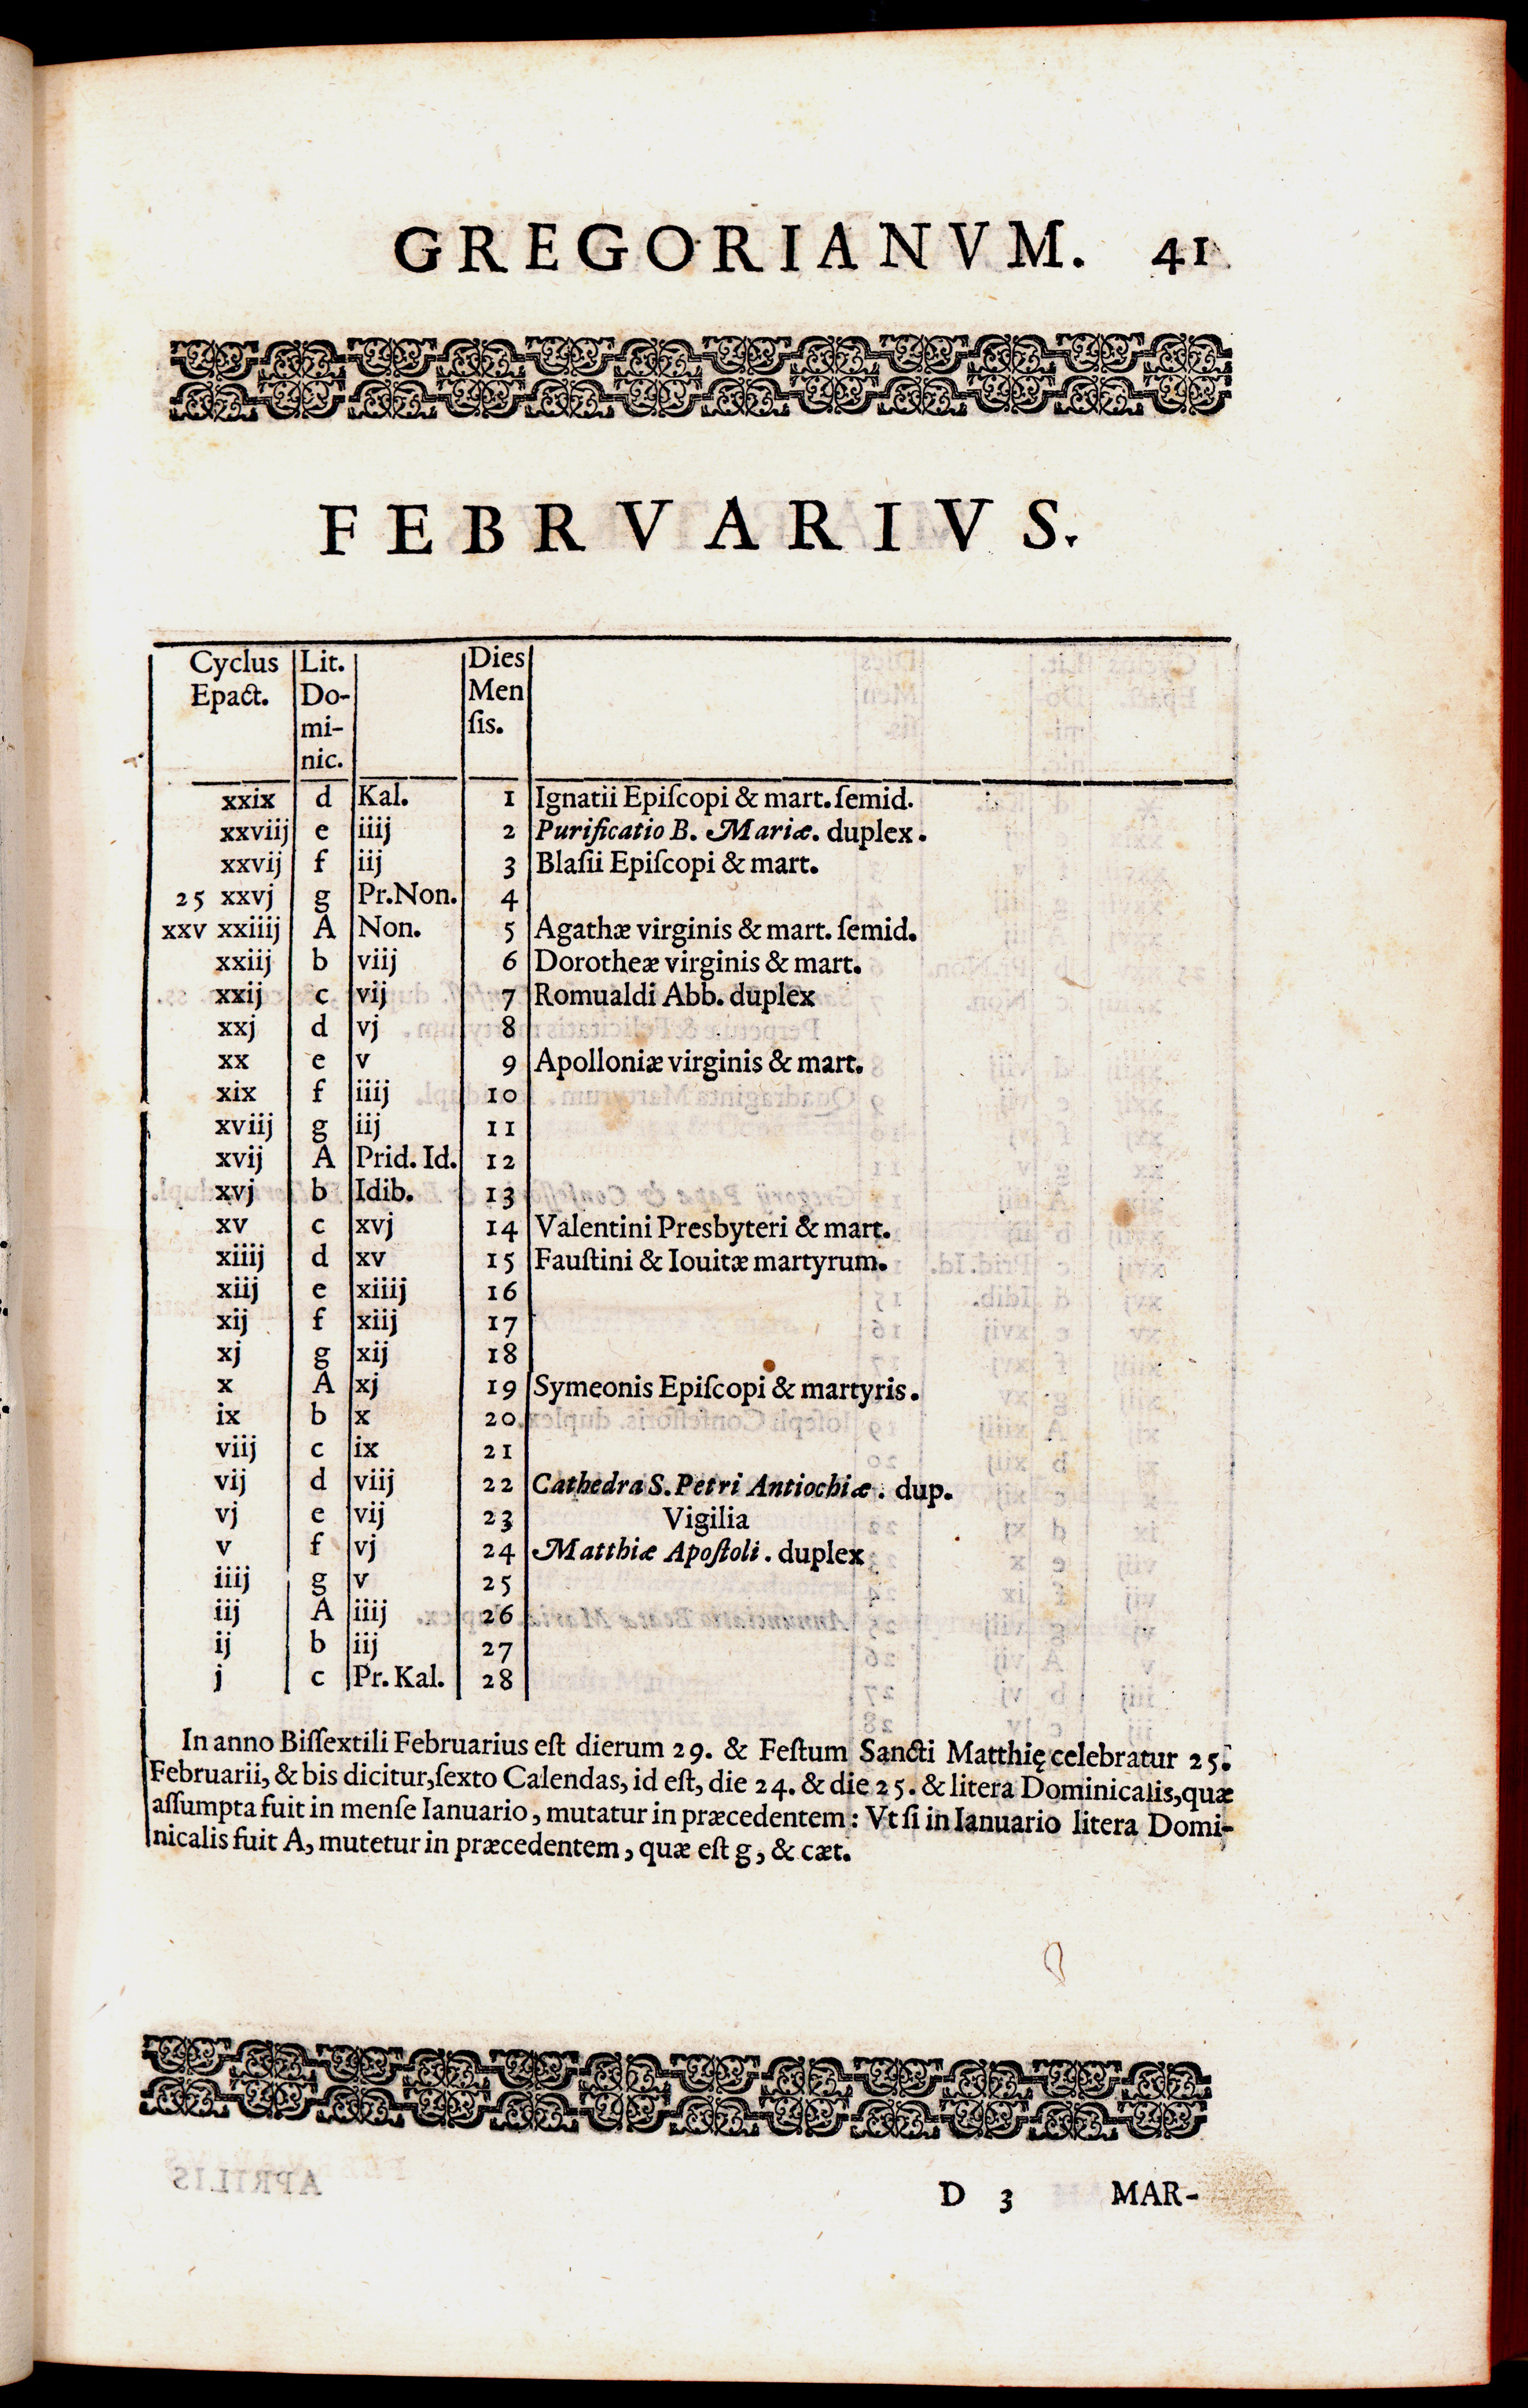 GREGORIANVM. 41
FEBRVARIVS.
Cyclus Lit. Dies
Epact. Do- Men
mi- ſis.
nic.
xxix d Kal. 1 Ignatii Epiſcopi & mart. ſemid.
xxviij e iiij 2 Purificatio B. Mariæ. duplex.
xxvij f iij 3 Blaſii Epiſcopi & mart.
25 xxvj g Pr.Non. 4
xxv xxiiij A Non. 5 Agathæ virginis & mart. ſemid.
xxiij b viij 6 Dorotheæ virginis & mart.
xxij c vij 7 Romualdi Abb. duplex
xxj d vj 8
xx e v 9 Apolloniæ virginis & mart.
xix f iiij 10
xviij g iij 11
xvij A Prid. Id. 12
xvj b Idib. 13
xv c xvj 14 Valentini Presbyteri & mart.
xiiij d xv 15 Fauſtini & Iouitæ martyrum.
xiij e xiiij 16
xij f xiij 17
xj g xij 18
x A xj 19 Symeonis Epiſcopi & martyris.
ix b x 20
viij c ix 21
vij d viij 22 Cathedra S. Petri Antiochiæ. dup.
vj e vij 23 Vigilia
v f vj 24 Matthiæ Apoſtoli. duplex
iiij g v 25
iij A iiij 26
ij b iij 27
j c Pr. Kal. 28
In anno Biſſextili Februarius eſt dierum 29. & Feſtum Sancti Matthię celebratur 25.
Februarii, & bis dicitur, ſexto Calendas, id eſt, die 24. & die 25. & litera Dominicalis, quæ
aſſumpta fuit in menſe Ianuario, mutatur in præcedentem: Vt ſi in Ianuario litera Domi-
nicalis fuit A, mutetur in præcedentem, quæ eſt g, & cæt.
D 3 MAR-